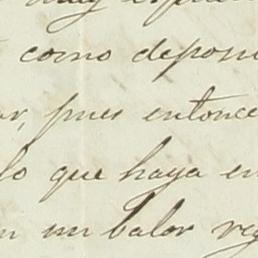 como deposi
r, pues entonce
lo que haya en
n un balor reg